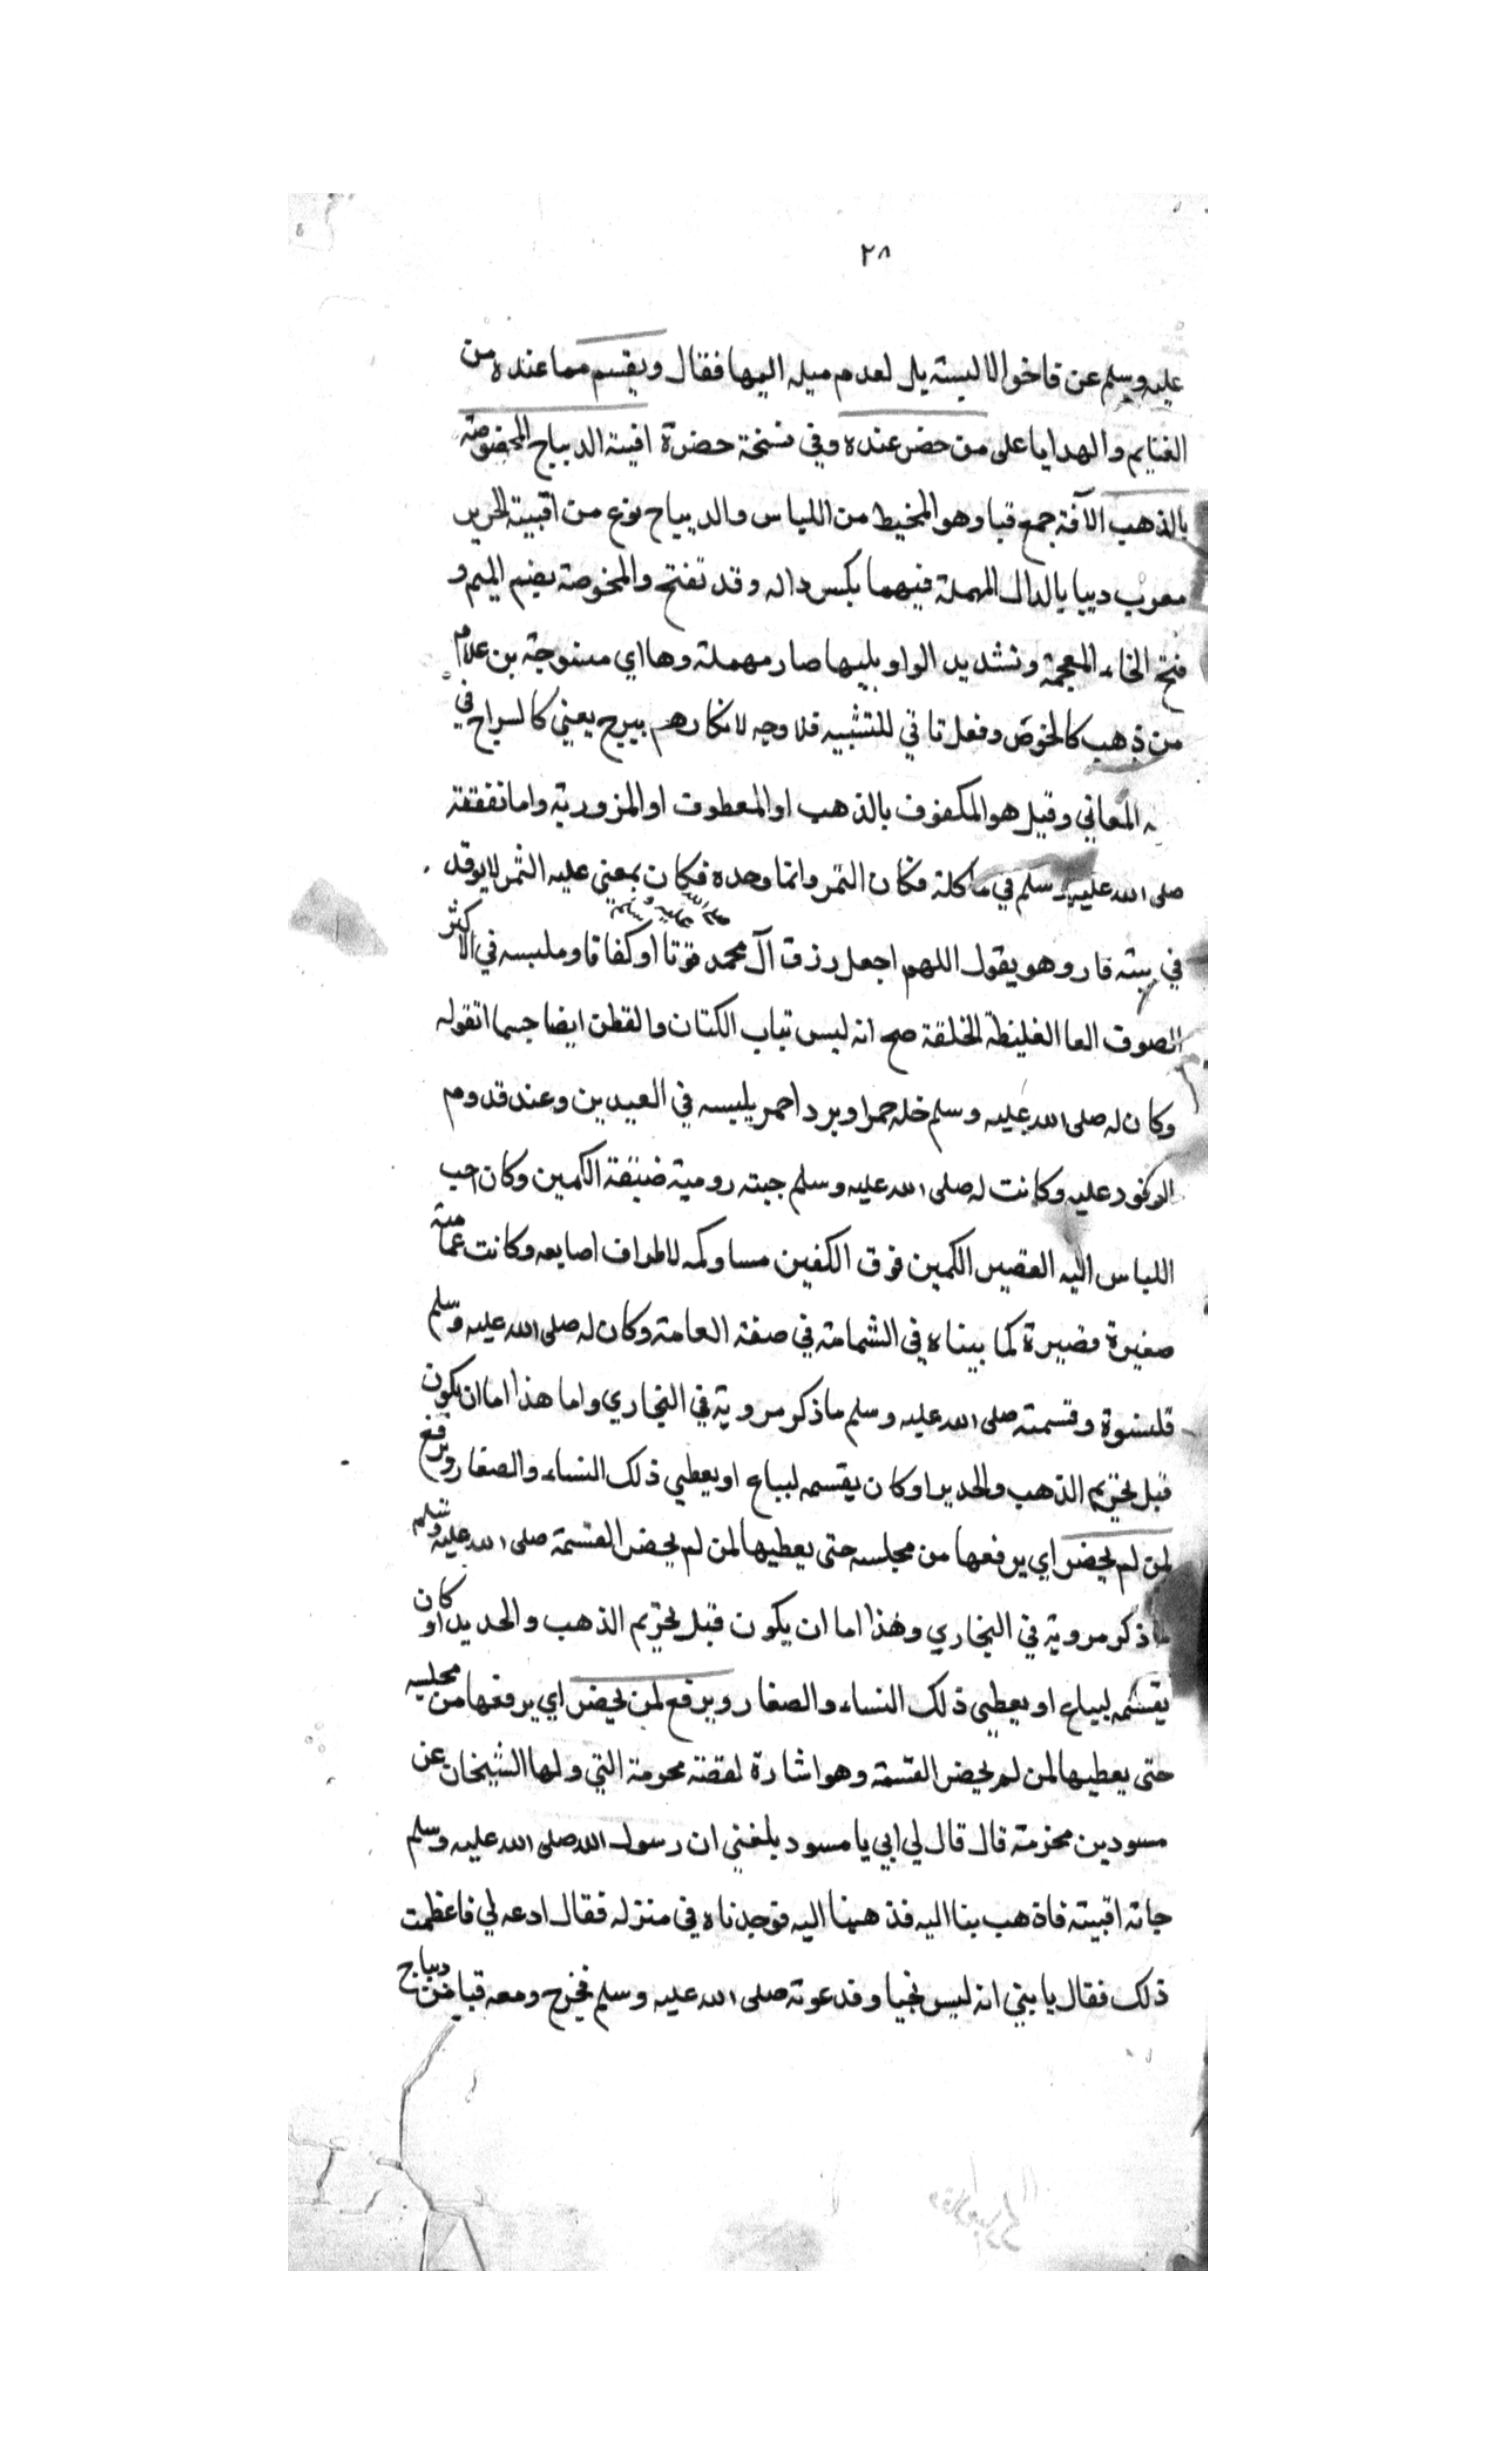 ٢٨
عليه وسلم عن فاخوا الالبسة بل لعدم ميله اليها فقال ويقسم مما عنده من
الغنايم والهدايا على من حضر عنده وفي نسخة حضرة اقبية الديباج المخوصة
بالذهب الآقبة جمع قبا وهو المخيط من اللباس والديباج نوع من اقبية الحرير
معرب ديبا بالدال المهملة فيهما بكسر داله وقد تفتح والمخوصة بضم الميم و
فتح الخاء المعجمة وتشديد الواو يليها صاد مهملة وها اي منسوجة بن علام
من ذهب كالخوص وفعل تاتي للتشبيه فلا وجه لانكارهم يعني كالسراج في
المعاني وقيل هو المكفوف بالذهب او المعطوف او المزورية واما نفقته
صلى الله عليه وسلم في ماكلة فكان التمر وانما وحده فكان بمعنى عليه الثمر لا يوقد
في بيته نار وهو يقول اللهم اجعل رزق آل محمد صلى الله عليه وسلم قوتا او كفافا وملبسه في الاكثر
الصوف العا الغليظة الخلقة صح انه لبس ثياب الكتان والقطن ايضا حسما اتقوله
وكان له صلى الله عليه وسلم حله حمرا وبرد احمر يلبسه في العيدين وعند قدوم
الوفود عليه وكانت له صلى الله عليه وسلم جبته رومية ضيقة الكمين وكان احب
اللباس اليه القصير الكمين فوق الكفين مساو كمه لاطراف اصابعه وكانت عمامته
صغيرة قصيرة كما بيناه في الشمامة في صفة العامة وكان له صلى الله عليه وسلم
قلنسوة وقسمته صلى الله عليه وسلم ما ذكر مروية في البخاري واما هذا اما ان يكون
قبل تحريم الذهب والحديد او كان يقسمه ليباع او يعطي ذلك النساء والصغار ويرفع
لمن لم يحضر اي يرفعها من مجلسه حتى يعطيها لمن لم يحضر القسمة صلى الله عليه وسلم
ما ذكر مروية في البخاري وهذا اما ان يكون قبل تحريم الذهب والحديد او كان
يقسمه ليباع او يعطي ذلك النساء والصغار ويرفع لمن يحضر اي يرفعها من مجلسه
حتى يعطيها لمن لم يحضر القسمة وهو اشارة لقصة محرمة التي ولها الشيخان عن
مسود بن محزمة قال قال لي ابي يا مسود بلغني ان رسول الله صلى الله عليه وسلم
جاته اقبيته فاذهب بنا اليه فذهبنا اليه فوجدناه في منزله فقال ادعه لي فاعظمت
ذلك فقال يا بني انه ليس بجبار فدعوته صلى الله عليه وسلم فخرج ومعه قبا من ديباج